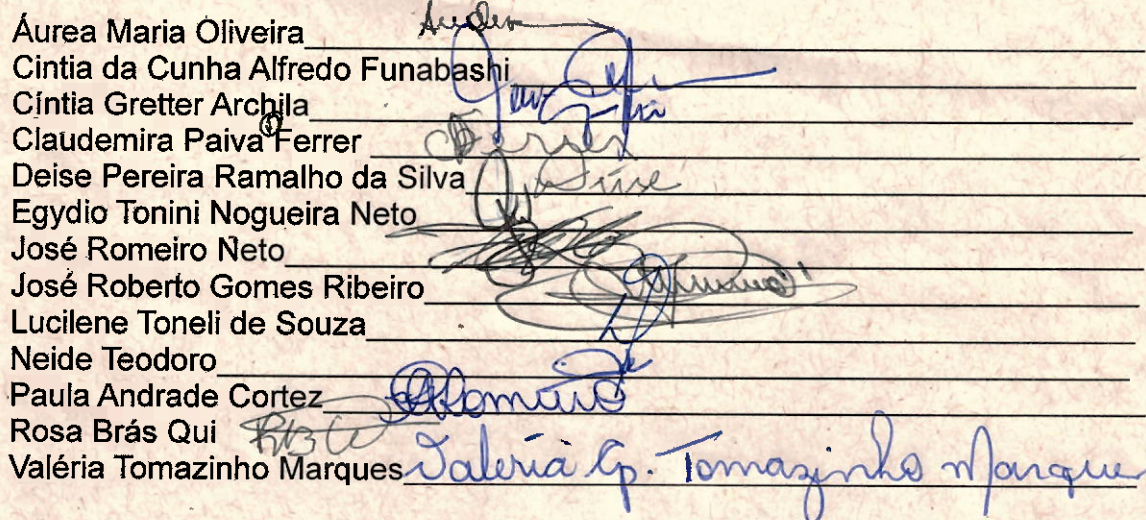 Áurea Maria Oliveira
Cintia da Cunha Alfredo Funabashi
Cíntia Gretter Archila
Claudemira Paiva Ferrer Ferrer
Deise Pereira Ramalho da Silva Deise
Egydio Tonini Nogueira Neto
José Romeiro Neto
José Roberto Gomes Ribeiro
Lucilene Toneli de Souza
Neide Teodoro
Paula Andrade Cortez
Rosa Brás Qui
Valéria Tomazinho Marques Valeria Ap. Tomazinho Marque